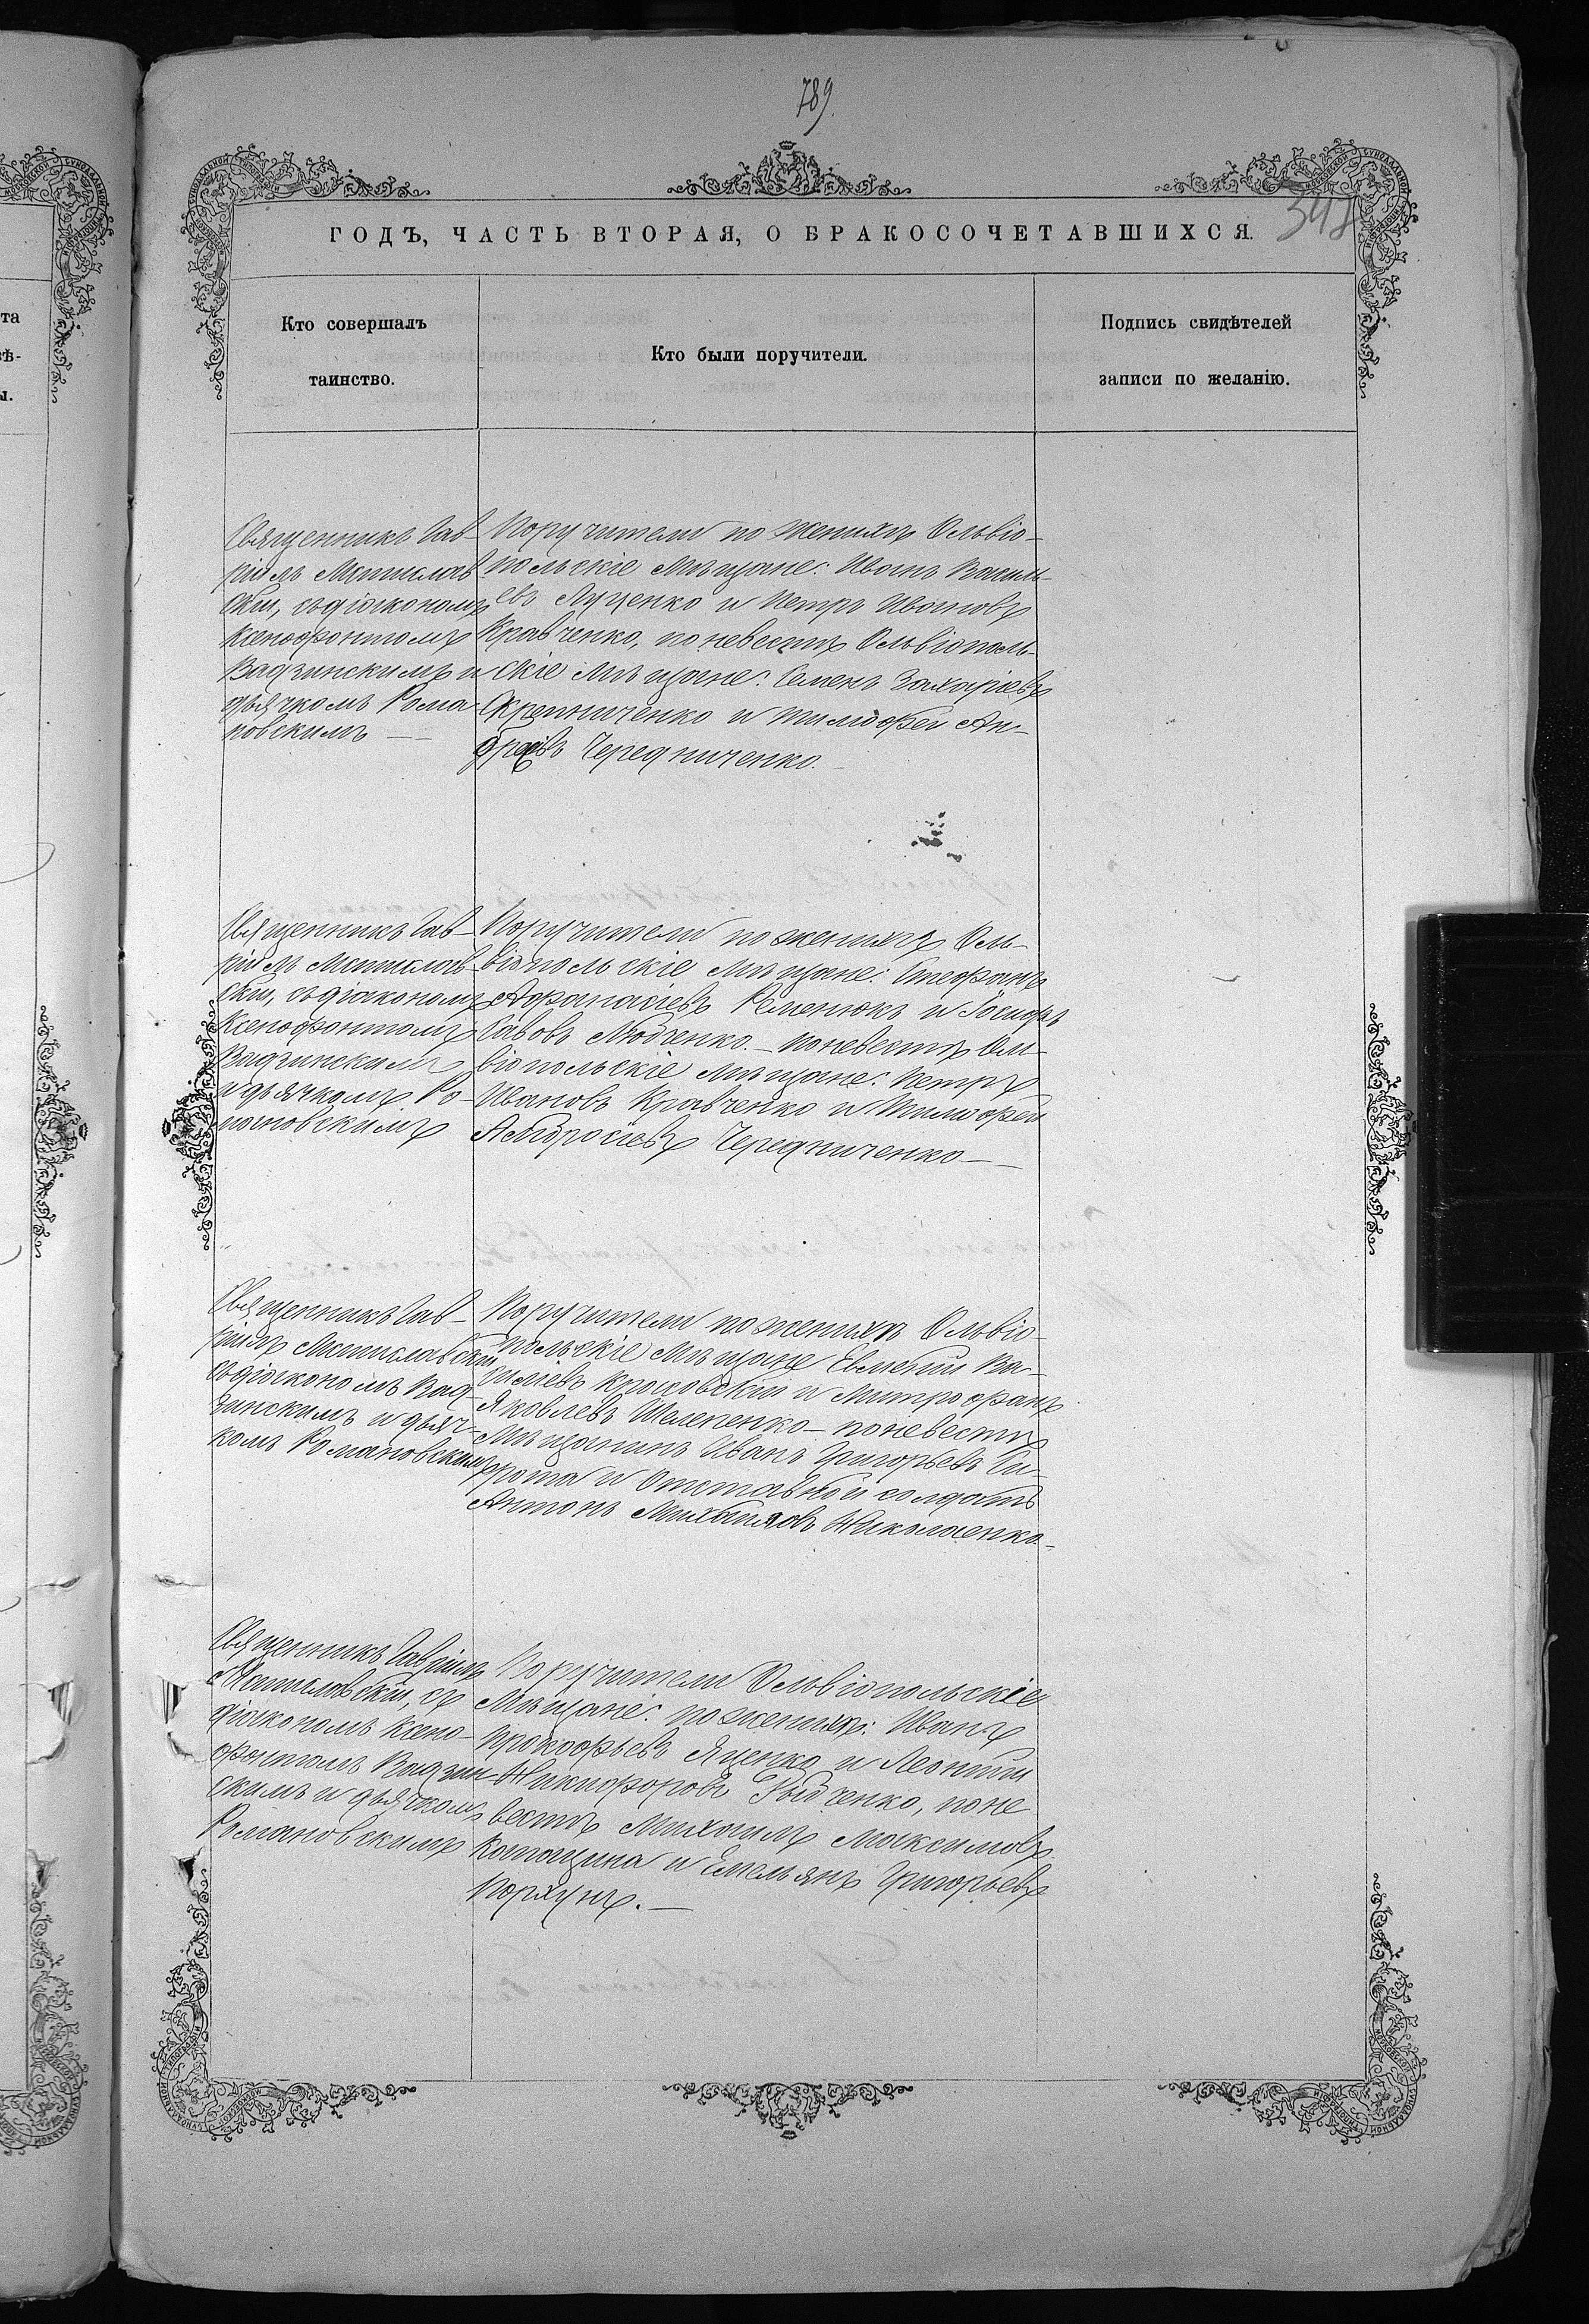 789.
348
ГОДЪ, ЧАСТЬ ВТОРАЯ, О БРАКОСОЧЕТАВШИХСЯ.
Кто совершалъ
таинство.
Кто были поручители.
Подпись свидѣтелей
записи по желанію.
Священникъ Гав-
ріилъ Мстислав
скій, съ діакономъ
Ксенофонтомъ
Вадзинскимъ и
дьячкомъ Рома
новскимъ —
Поручители по женихѣ Ольвіо-
польскіе мѣщане: Иванъ Василь-
евъ Луценко и Петръ Ивановъ
Кравченко, по невестѣ Ольвіополь-
скіе мѣщане: Семенъ Захаріевъ
и Тимофей Ан-
дреевъ Чередниченко.
Священникъ Гав-
ріилъ Мстислав-
скій, съ діакономъ
Ксенофонтомъ
Вадзинскимъ
и дьячкомъ Ро-
мановскимъ
Поручители по женихѣ Оль-
віопольскіе мѣщане: Стефанъ
Афанасіевъ Ременюкъ и Іосифъ
Савовъ Любченко. — по невестѣ Оль-
віопольскіе мѣщане: Петръ
Ивановъ Кравченко и Тимофей
Чередниченко —
Священникъ Гав-
ріилъ Мстиславскій
съ діакономъ Вад-
зинскимъ и дьяч-
комъ Романовскимъ
Поручители по женихѣ Ольвіо-
польскіе мѣщане Евменій Ва-
силіевъ и Митрофанъ
Яковлевъ Шелепенко — по невестѣ
мѣщанинъ Иванъ Григорьевъ Си-
рота и отставной солдатъ
Антонъ Михайловъ Николаенко. —
Священникъ Гавріилъ
Мстиславскій, съ
діакономъ Ксено-
фонтомъ Вадзин
скимъ и дьячкомъ
Романовскимъ
Поручители Ольвіопольскіе
мѣщане: по женихѣ: Иванъ
Прокофьевъ Яценко и Леонтій
Никифоровъ по не
вестѣ Михаилъ Максимовъ
и Емельянъ Григорьевъ
Корхунъ. —